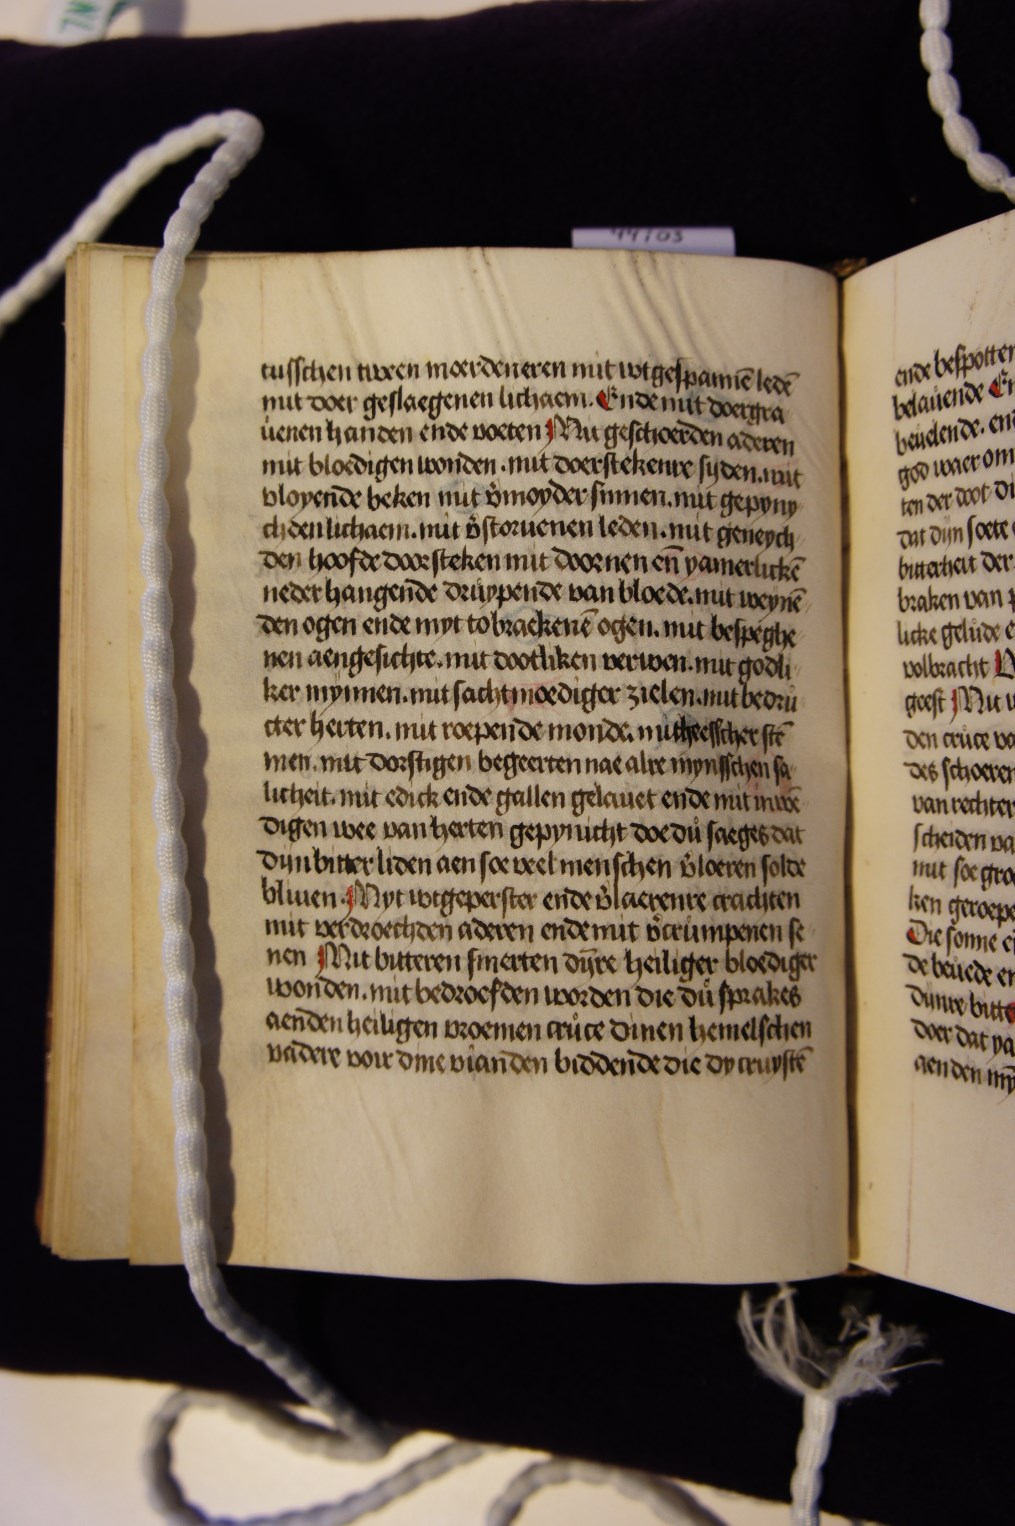 tusschen tween moerdeneren mit wtgespannē ledē
mit doer geslaegenen lichaem. Ende mit doergra
uenen handen ende voeten Mit geschoerden aderen
mit bloedigen wonden. mit doerstekenre syden. mit
vloyende beken mit v̄moyder sinnen. mit gepyny
chden lichaem. mit v̄storuenen leden. mit geneych
den hoofde doorsteken mit doornen en̄ yamerlickē
neder hangende druypende van bloede. mit weynē
den ogen ende myt tobraekenē ogen. mit bespeghe
nen aengesichte. mit dootliken verwen. mit godli
ker mynnen. mit sachtmoediger zielen. mit bedru
cter herten. mit roepende monde. mit heesscher stē
men. mit dorstigen begeerten nae alre mynsschen sa
licheit. mit edick ende gallen gelauet ende mit
digen wee van herten gepynicht doe du saeges dat
dijn bitter liden aen soe veel menschen v̄loeren solde
bliuen. Myt wtgeperster ende v̄laerenre crachten
mit verdroechden aderen ende mit v̄crumpenen se
nen Mit bitteren smerten dijnre heiliger bloediger
wonden. mit bedroefden worden die du sprakes
aenden heiligen vroemen cruce dinen hemelschen
vadere voir dine vianden biddende die dy cruystē
ende bespotten
belauende En
beuelende. en
god waer om
ten der doot di
dat dijn soete
bitterheit der
braken van
licke gelude e
volbracht
geest Mit
den cruce va
des schoeren
van rechter
scheiden va
mit soe gro
ken geroepe
Die sonne e
de beuede en
dinre bitte
doer dat ya
aen den